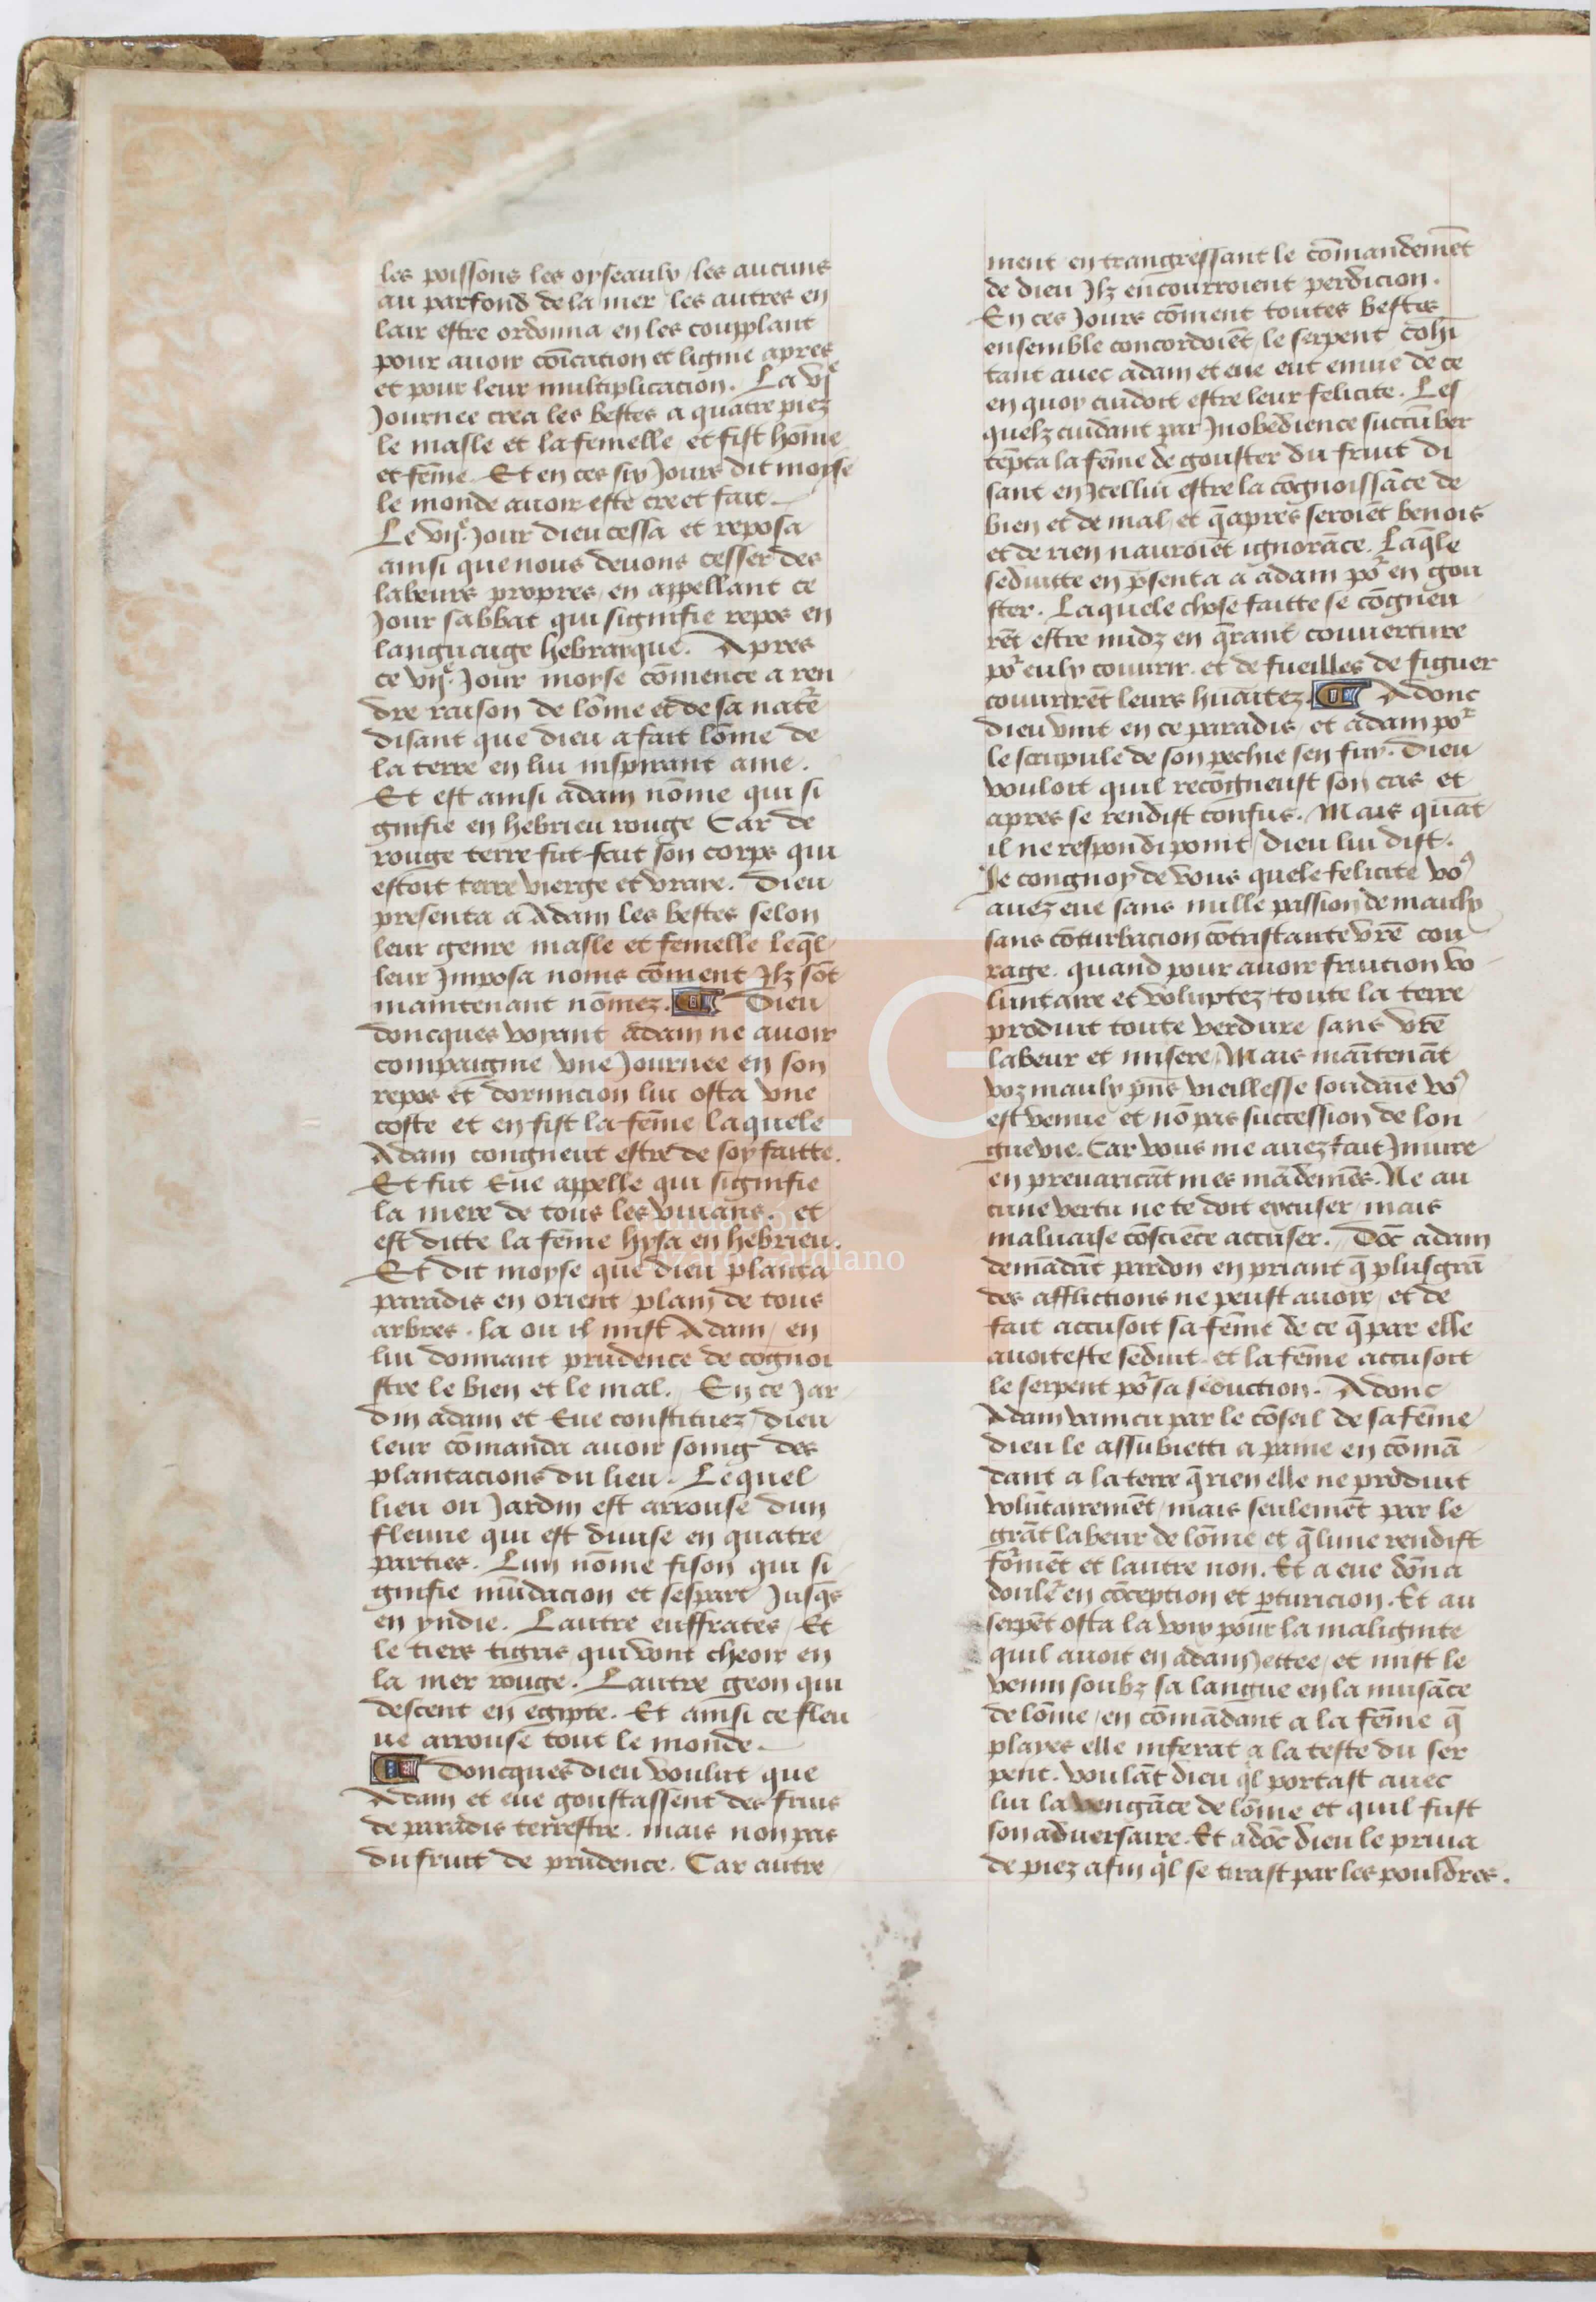 les poissons les oyseaulx / les aucuns
au parfond de la mer / les autres en
lair estre ordonna en les coupplant
pour auoir cōication et lignie apres
et pour leur multiplicacion. La vjᵉ
Journee crea les bestes a quatre piez
le masle et la femelle / et fist hōme
et fēme. Et en ces six Jours dit moyse
le monde auoir este cree et fait.
Le vijᵉ. Jour dieu cessa et reposa
ainsi que nous deuons cesser des
labeurs propres / en appellant ce
Jour sabbat qui signifie repos en
languaige hebraique. Apres
ce vijᵉ. Jour moyse cōmence a ren
dre raison de lōme et de sa natr̄e
disant que dieu a fait lōme de
la terre en lui inspirant ame.
Et est ainsi adam nōme qui si
gnifie en hebrieu rouge Car de
rouge terre fut fait son corps qui
estoit terre vierge et vraye. Dieu
presenta a Adam les bestes selon
leur genre masle et femelle leq̄l
leur Jmposa noms cōment Jlz sōt
maintenant nōmez. Dieu
doncques voyant adam ne auoir
compaignie / vne Journee en son
repos et dormicion lui osta vne
coste et en fist la fēme laquele
Adam congneut estre de soy faitte.
Et fut Eue appelle qui signifie
la mere de tous les viuans. et
est ditte la fēme hysa en hebrieu.
Et dit moyse que dieu planta
paradis en orient / plain de tous
arbres. la ou il mist Adam / en
lui donnant prudence de cognoi
stre le bien et le mal. En ce Jar
din adam et Eue constituez / dieu
leur cōmanda auoir soing des
plantacions du lieu. Lequel
lieu ou Jardin est arrouse dun
fleuue qui est diuise en quatre
parties. Lun nōme fison qui si
gnifie inūdacion et sespart Jusq̄s
en yndie. Lautre euffrates / Et
le tiers tigris qui vont cheoir en
la mer rouge. Lautre geon qui
descent en egipte. Et ainsi ce fleu
ue arrouse tout le monde.
Doncques dieu voulut que
Adam et eue goustassent des fruis
de paradis terrestre. mais non pas
du fruit de prudence. Car autre
ment en trangressant le cōmandemēt
de dieu Jlz encourroient perdicion.
En ces Jours cōment toutes bestes
ensemble concordoiēt / le serpent cōhi
tant auec adam et eue eut enuie de ce
en quoy cuidoit estre leur felicite. Les
quelz cuidant par Jnobedience succūber
tēpta la fēme de gouster du fruit di
sant en Jcellui estre la cōgnoissāce de
bien et de mal / et q̄ apres seroiēt benois
et de rien nauroiēt ignorāce. Laq̄le
seduitte en p̄senta a adam poʳ en gou
ster. Laquele chose faitte se cōgneu
rēt estre nudz en q̄rant couuerture
poʳ eulx couurir. et de fueilles de figuer
couurirēt leurs huaitez. Adonc
dieu vint en ce paradis / et adam poʳ
le scrupule de son pechie sen fuy. Dieu
vouloit quil recōgneust son cas et
apres se rendist confus. Mais quāt
il ne respondi point / dieu lui dist.
Je congnoy de vous quele felicite voꝰ
auez eue sans nulle passion de maulx
sans cōturbacion cōtristante vr̄e cou
rage. quand pour auoir fruition vo
luntaire et voluptez toute la terre
produit toute verdure sans vr̄e
labeur et misere / Mais maītenāt
voz maulx p̄ns vieillesse soudaīe voꝰ
est venue et nō pas succession de lon
gue vie. Car vous me auez fait Jniure
en preuaricāt mes mādemēs. Ne au
cune vertu ne te doit excuser / mais
maluaise cōsciēce accuser. Dōc adam
demādāt pardon en priant q̄ plus grā
des afflictions ne peust auoir / et de
fait accusoit sa fēme de ce q̄ par elle
auoit este seduit. et la fēme accusoit
le serpent poʳ sa seduction. Adonc
Adam vaincu par le cōseil de sa fēme
dieu le assubietti a paine en cōmā
dant a la terre q̄ rien elle ne produit
volūtairemēt / mais seulemēt par le
grāt labeur de lōme et q̄ lune rendist
foʳmēt et lautre non. Et a eue dōna
douleʳ en cōception et p̱turicion. Et au
serpēt osta la voix pour la malignite
quil auoit en adam Jettee / et mist le
venin soubz sa langue en la nuisāce
de lōme / en cōmādant a la fēme q̄
playes elle inferat a la teste du ser
pent. voulāt dieu q̄l portast auec
lui la vengāce de lōme et quil fust
son aduersaire. Et adōc dieu le priua
de piez afin q̄l se tirast par les pouldres.
LG
Fundación
Lázaro Galdiano